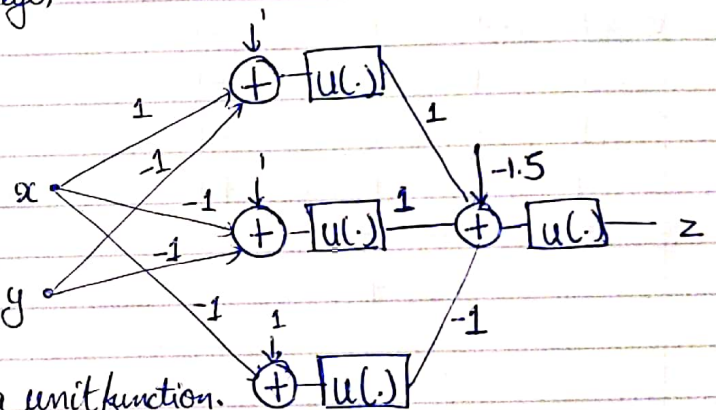 1
u(·)
1
1
-1
-1.5
x
-1
1
u(·)
1
u(·)
z
-1
y
-1
1
-1
u(·)
unit function.